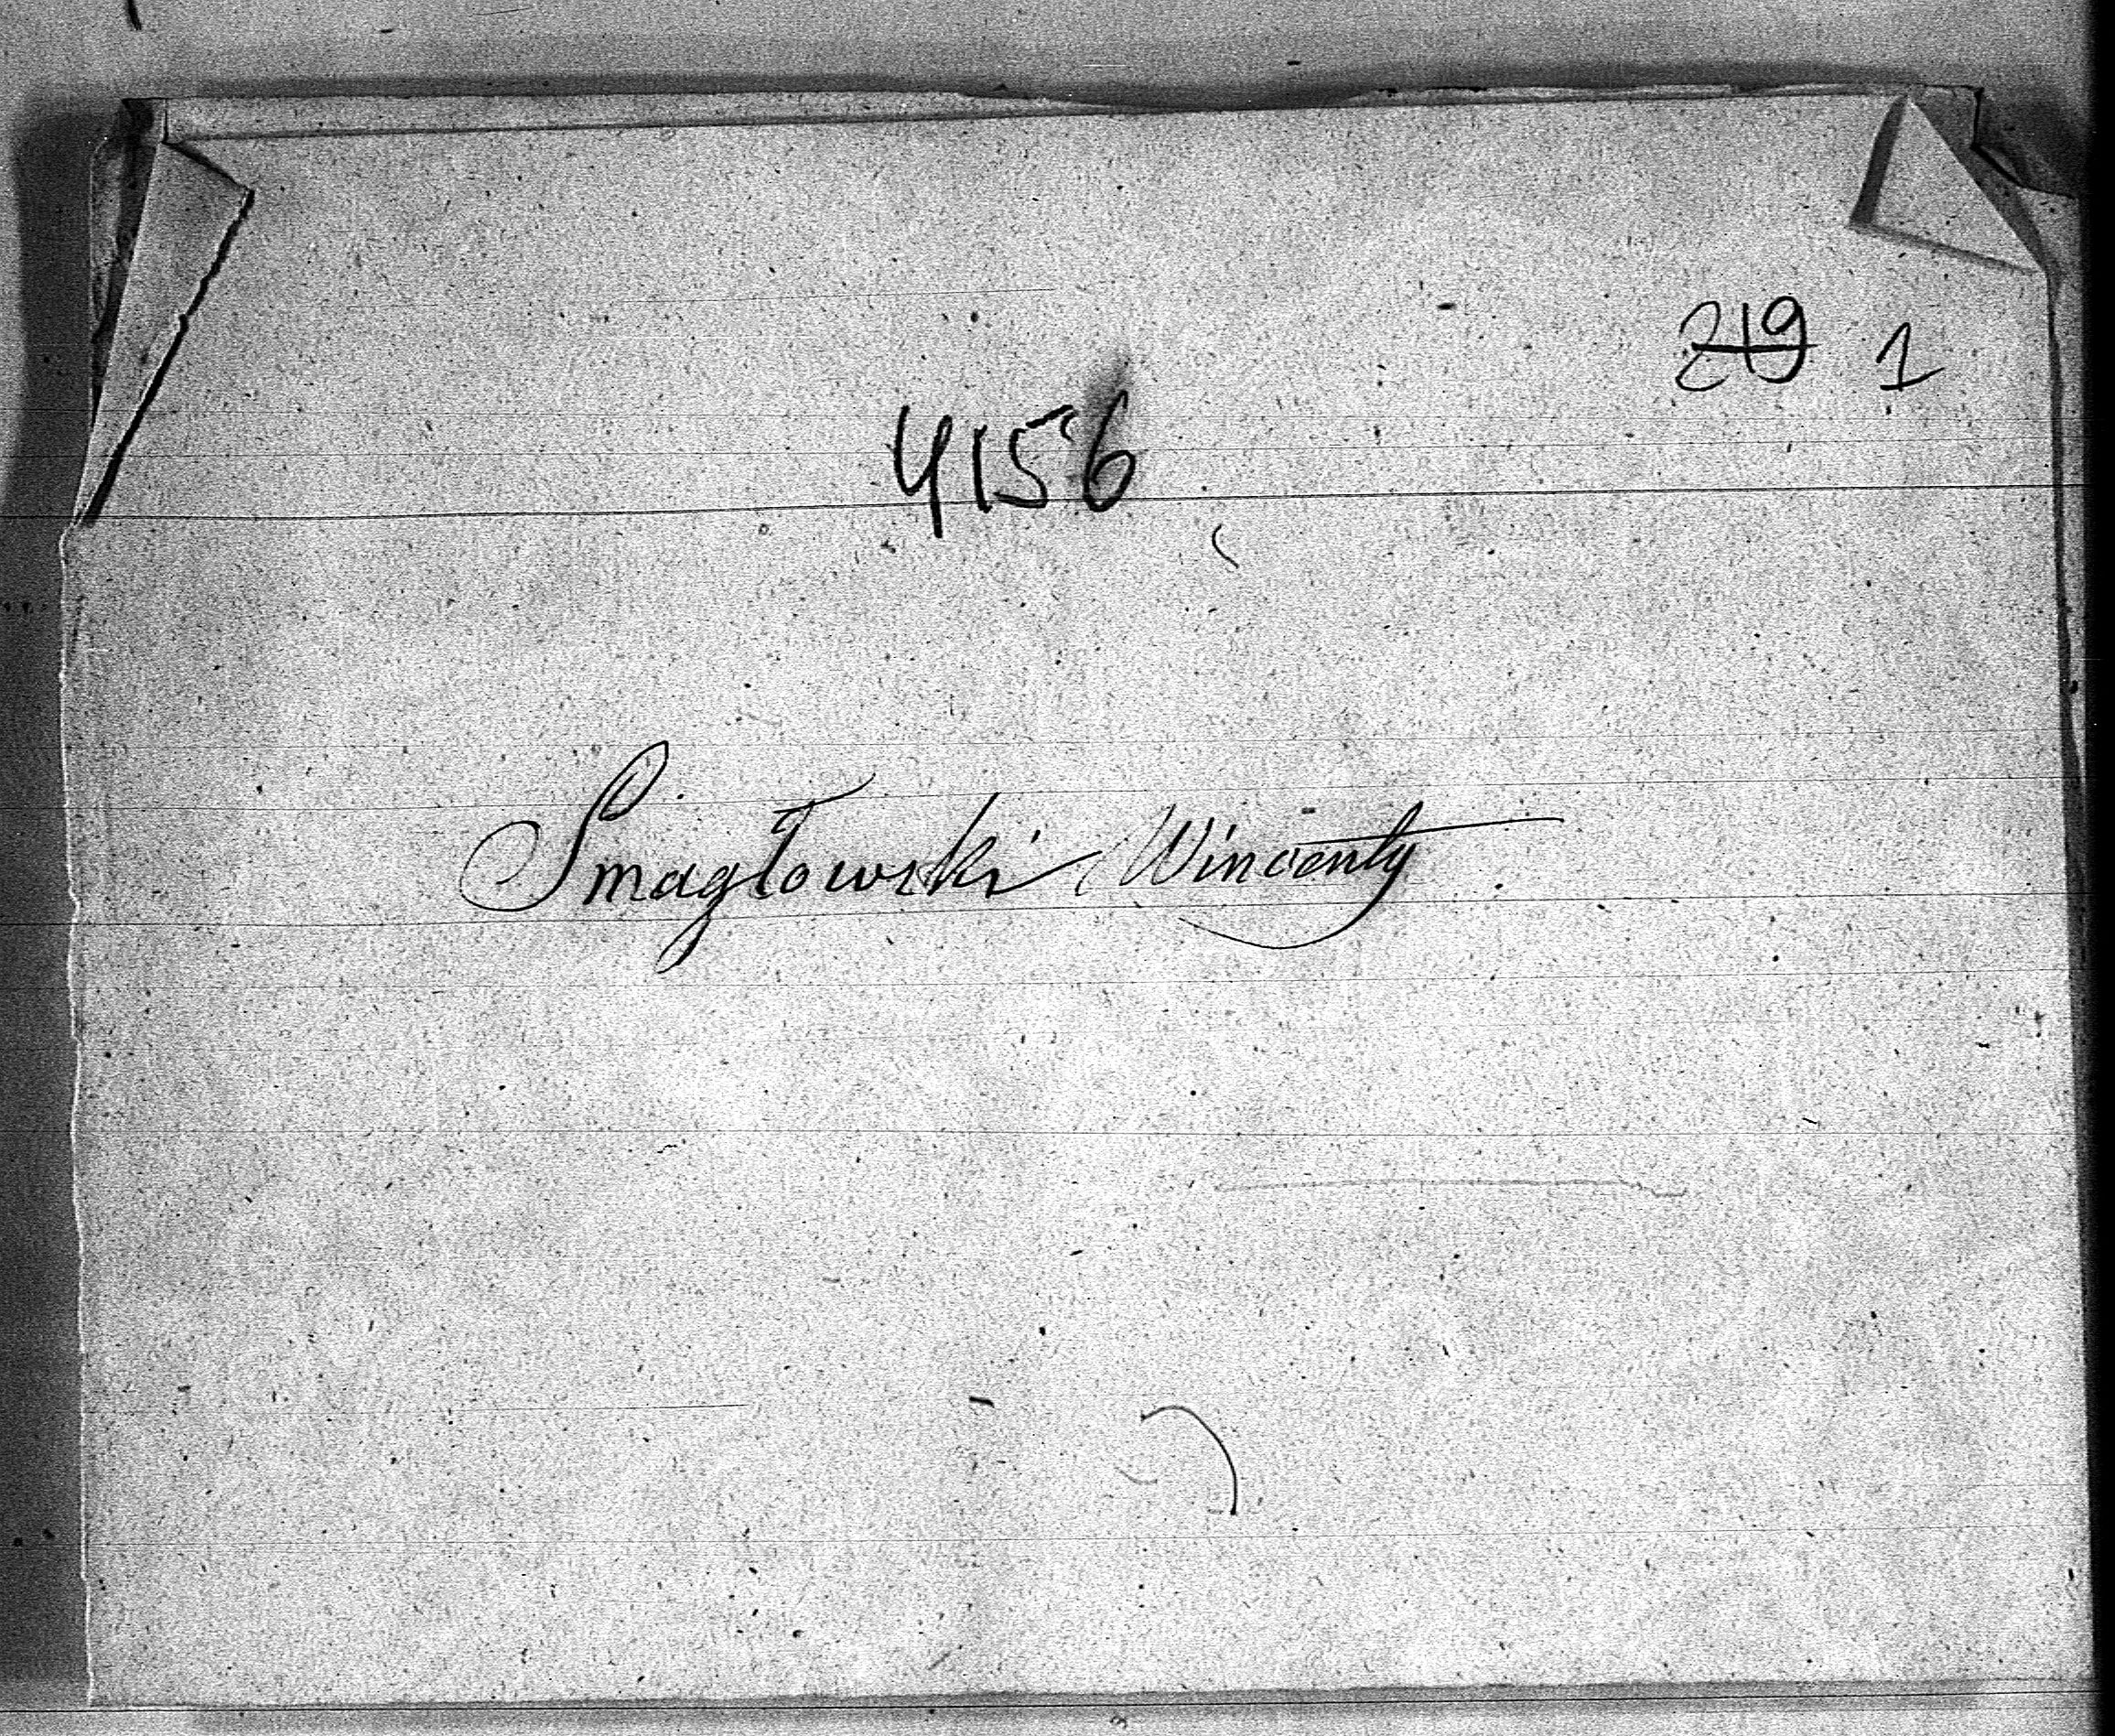 219 1
4156
Smagłowski Wincenty